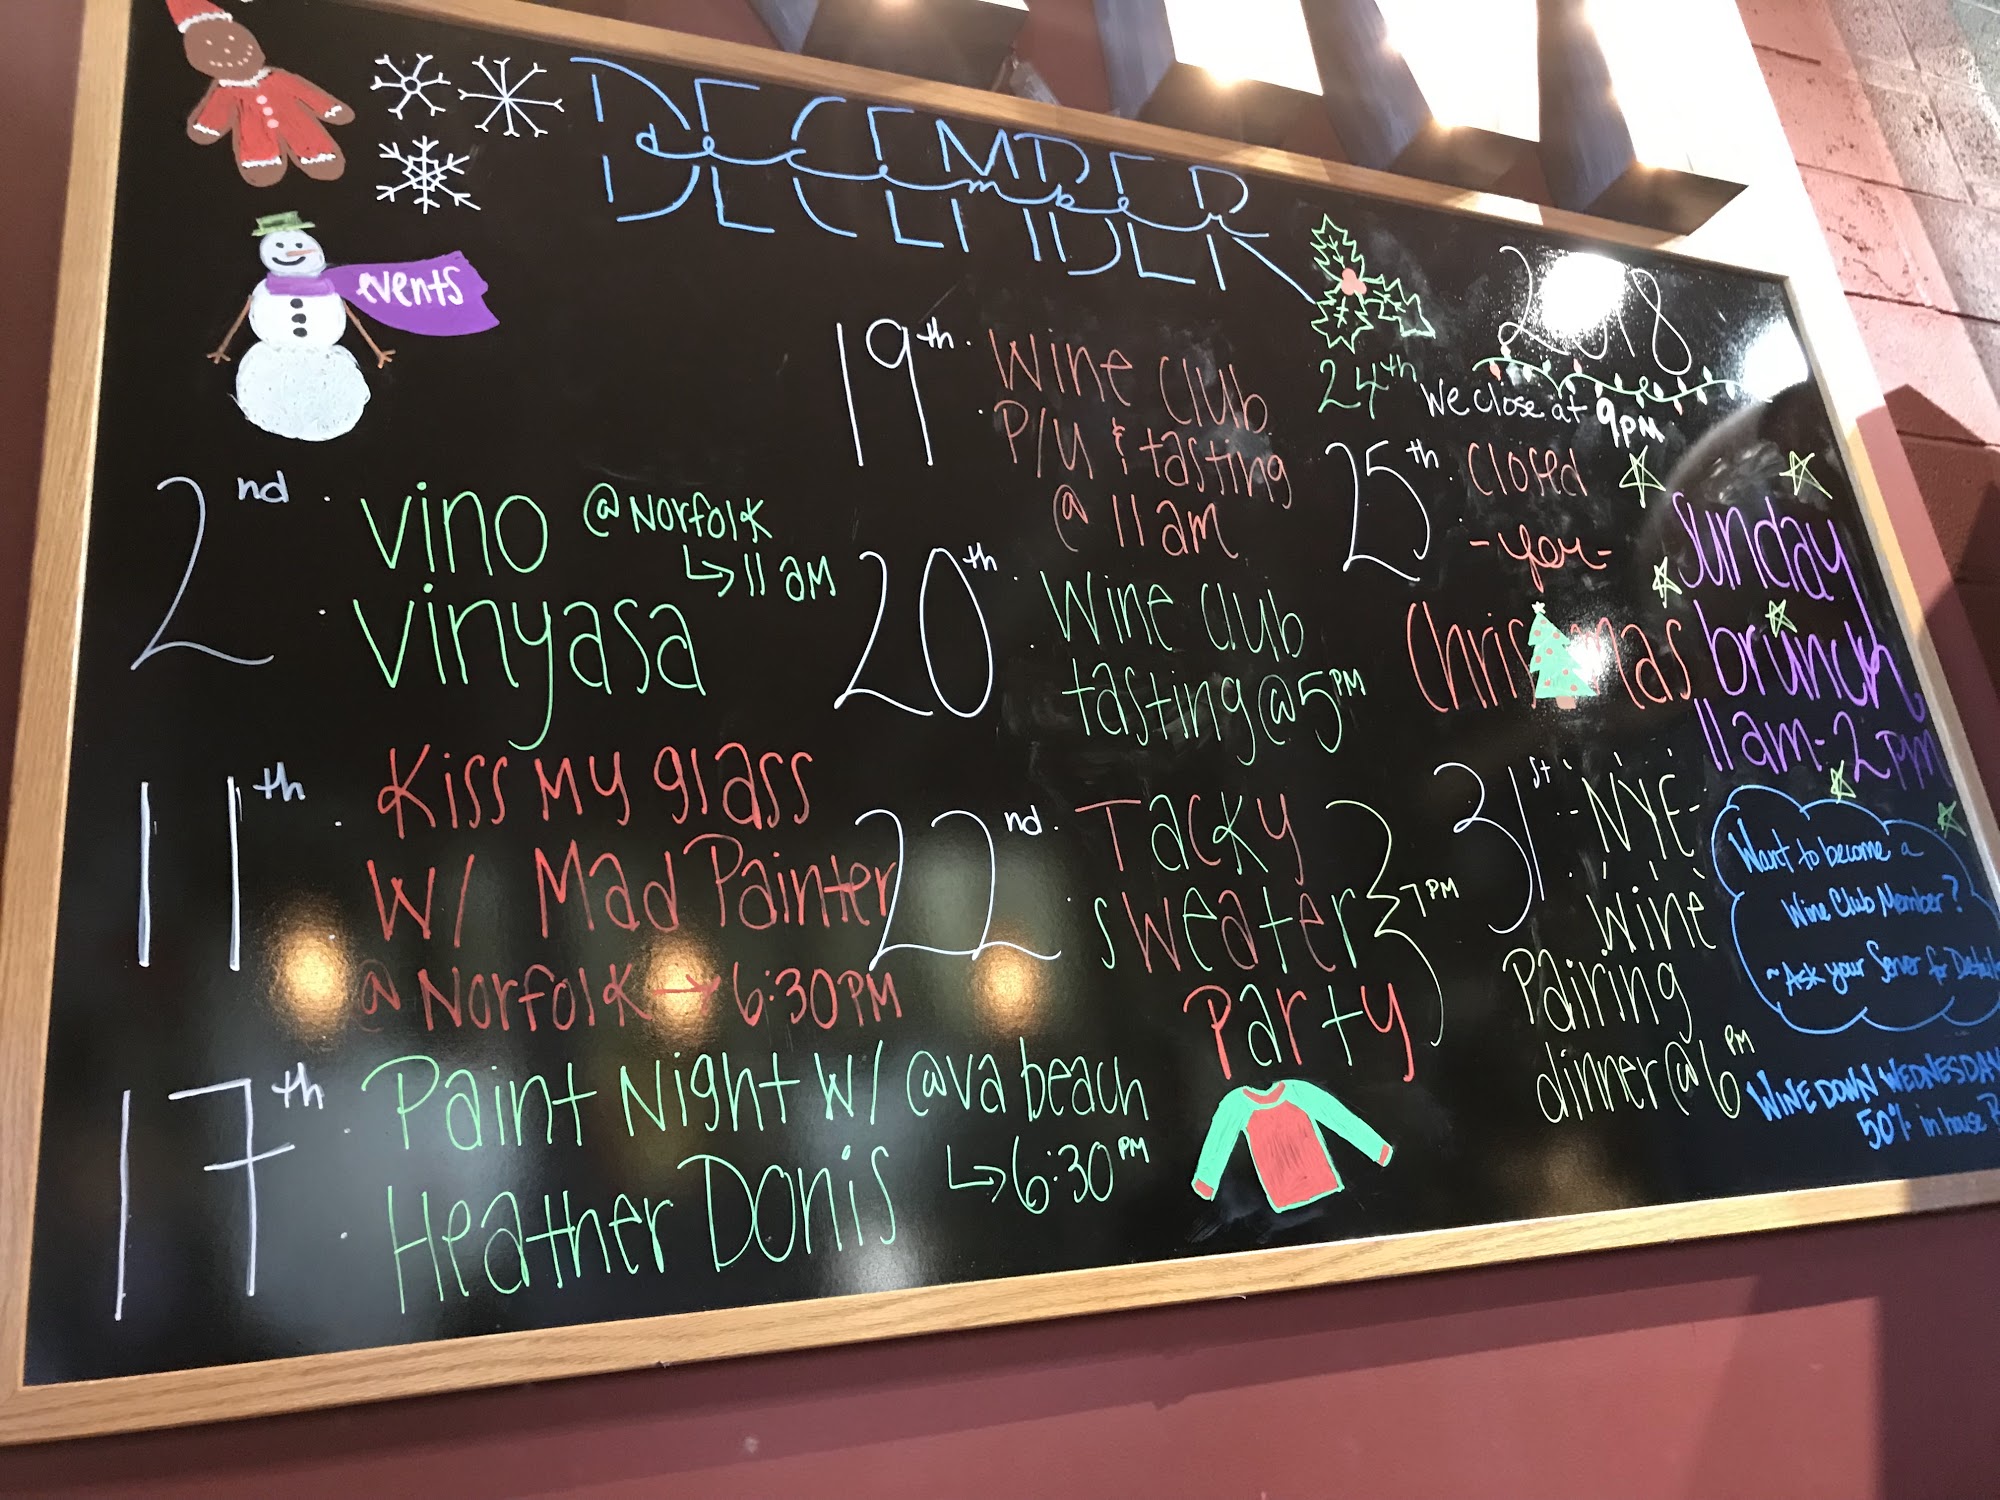 DECEMBER
december
2018
events
2nd. vino @Norfolk
↳ 11 AM
vinyasa
11th. Kiss My glass
w/ Mad Painter
@ Norfolk → 6:30PM
17th. Paint Night w/ @va beach
Heather Donis ↳ 6:30PM
19th. Wine Club
P/U & tasting
@ 11am
20th. Wine Club
tasting@5PM
22nd. Tacky
sweater
Party
7PM
24th We close at 9PM
25th. Closed
-for-
Christmas
31st. -NYE-
Wine
Pairing
dinner@6PM
Sunday
brunch
11am-2PM
Want to become a
Wine Club Member?
~Ask your Server for
WINE DOWN WEDNESDAY
50% in house